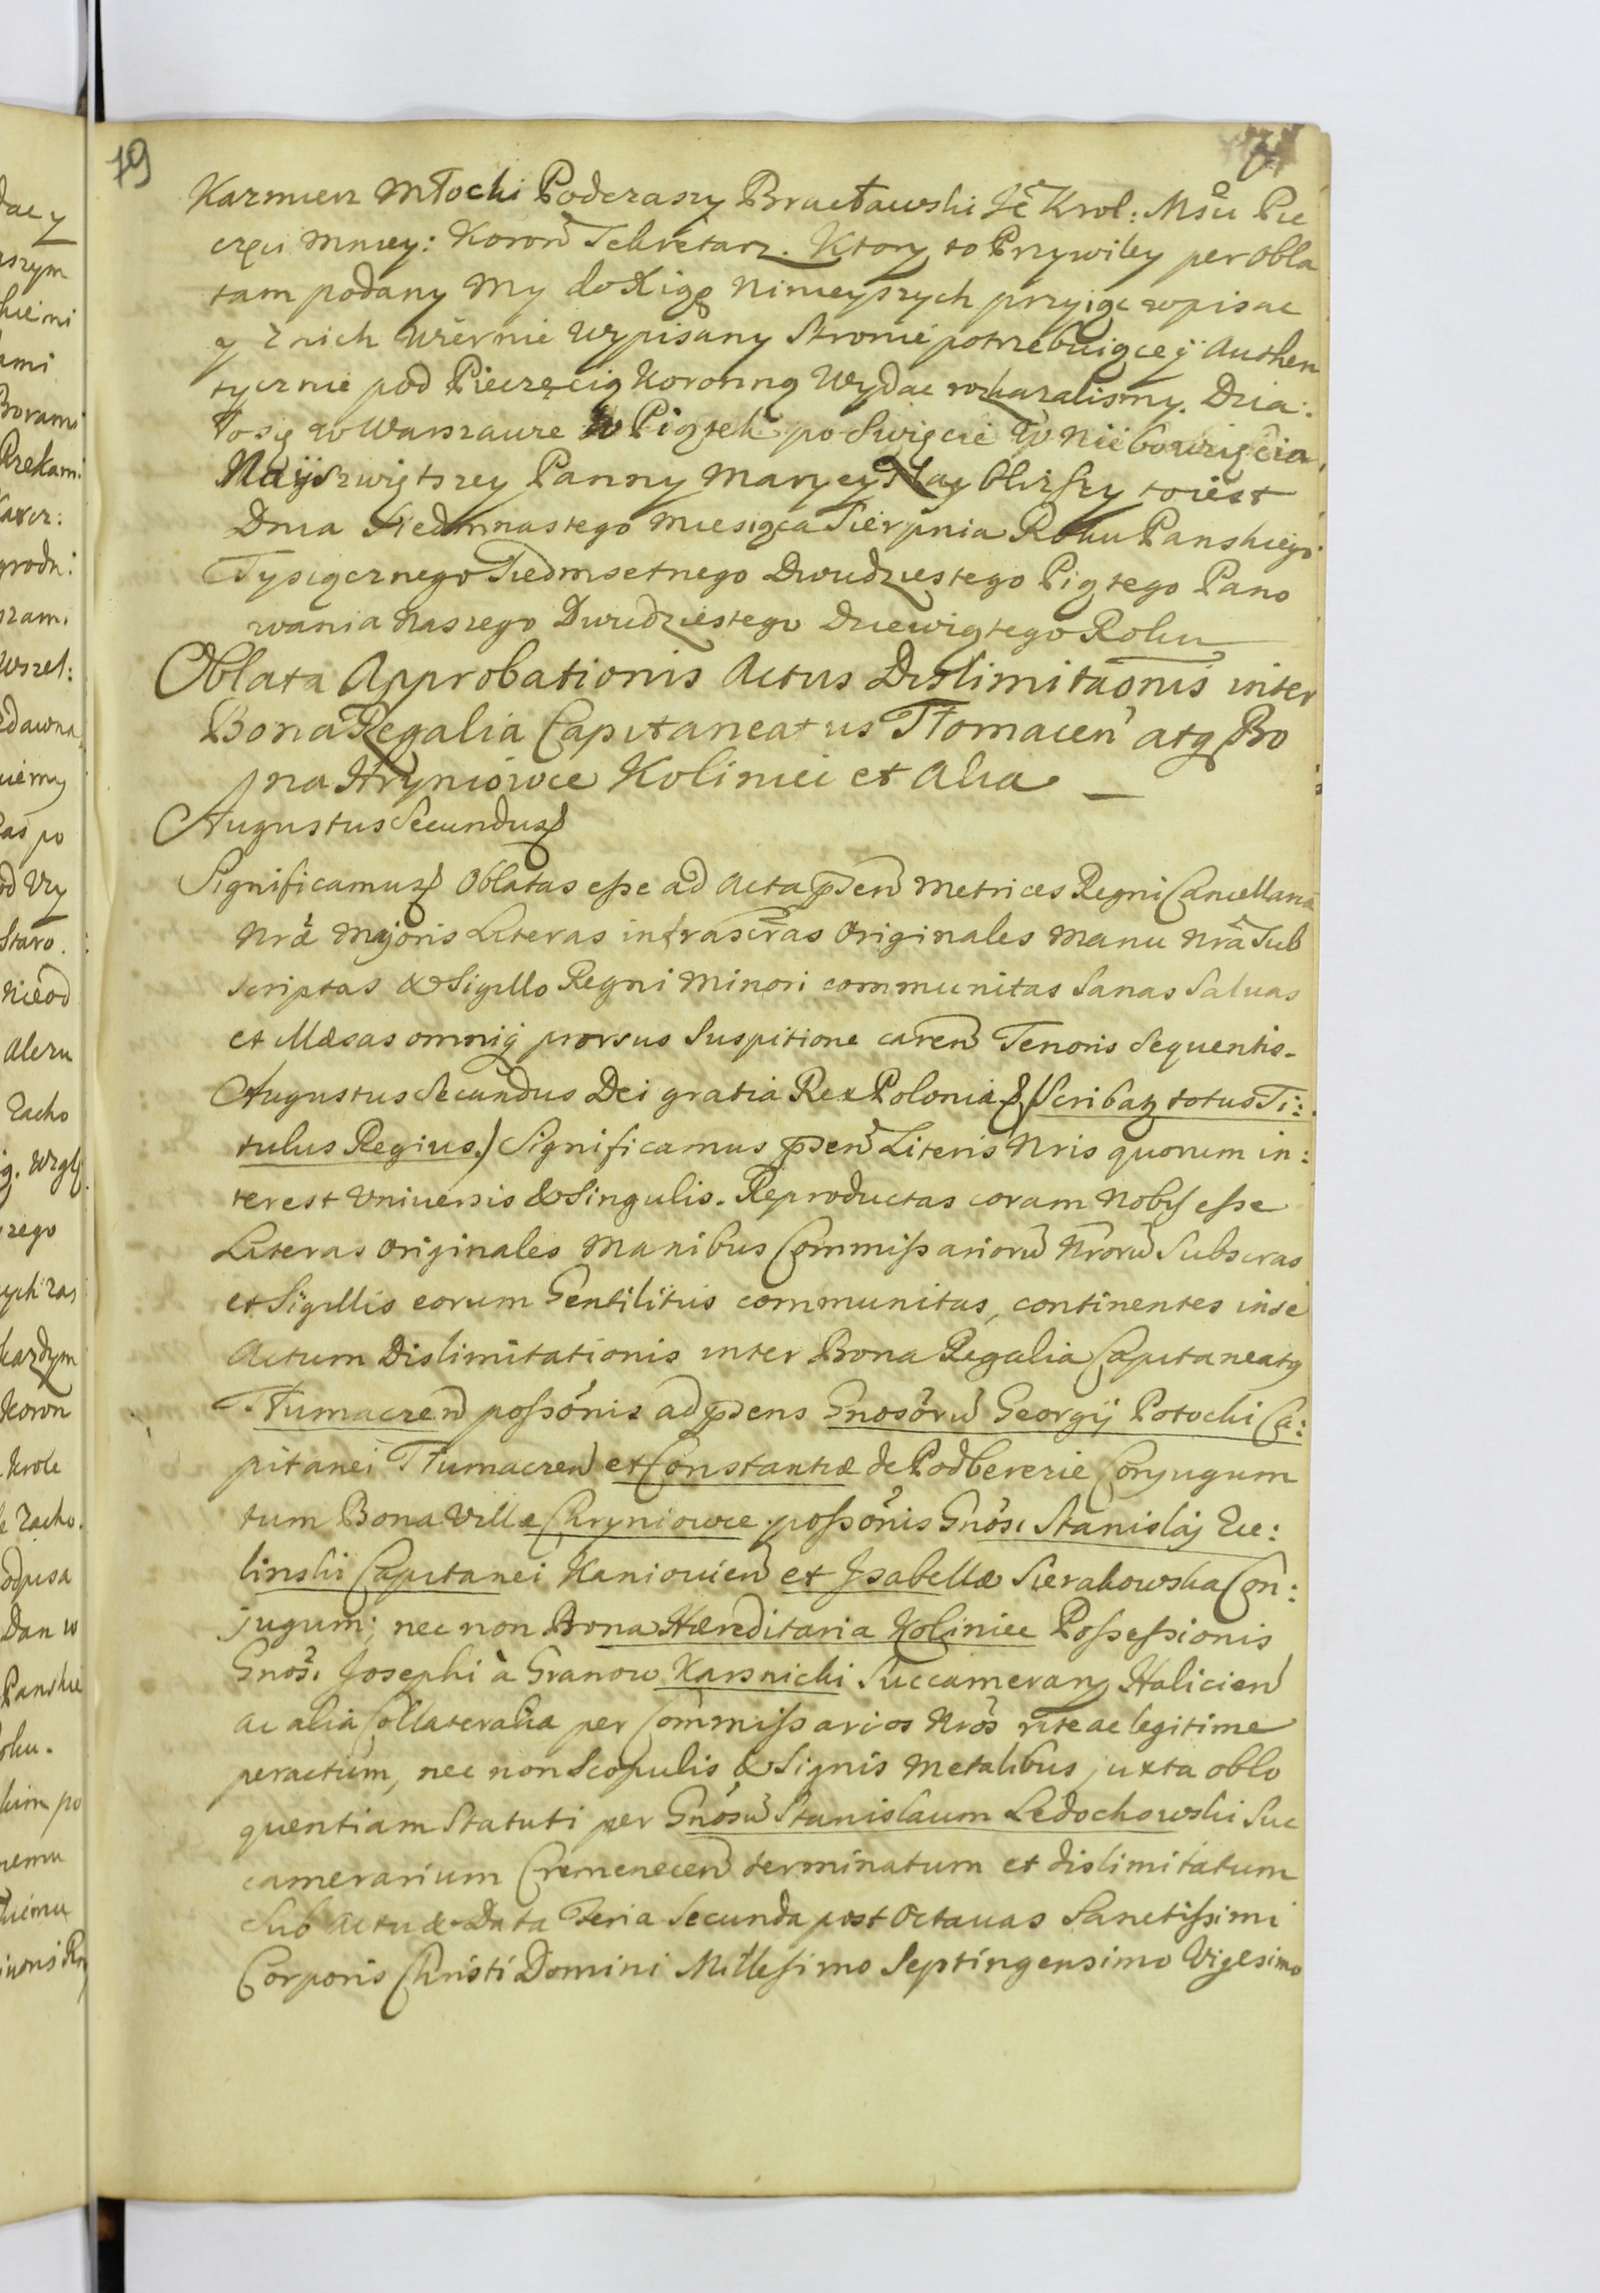 79
Kazmierz Młocki Podczaszy Bracławski Jē Krol: Msći Pie
częci Mniey: Koron̄ Sekretarz. Ktory to Przywiley per obla
tam podany My do Xiąg Ninieyszych przyiąć wpisac
y z nich wiernie wypisany Stronie potrzebuiącey Authen
tycznie pod Pieczęcią Koronną Wydac rozkazalismy. Dzia:
ło się w Warszawie w Piątek po Swięcie W Niebowzięcia
Nayswiętszey Panny Maryey Nayblizszy to iest
Dnia Siedmnastego Miesiąca Sierpnia Roku Panskiego
Tysiącznego Siedmsetnego Dwudziestego Piątego Pano
wania Naszego Dwudziestego Dziewiątego Roku
Oblata Approbationis Actus Dislimitaōnis inter
Bona Regalia Capitaneatus Tłomacen̄ atq Bo
na Hryniowce Kolinici et Alia
Augustus Secundus &
Significamus & Oblatas esse ad Acta p̄sen̄ Metrices Regni Cancellariæ
Nr̄æ Majoris Literas infrascr̄as Originales Manu Nr̄a Sub
scriptas & Sigillo Regni Minori communitas Sanas Salvas
et Illæsas omniq prorsus Suspitione caren̄ Tenoris Sequentis.
Augustus Secundus Dei gratia Rex Poloniæ & (Scribatz totus Ti:
tulus Regius.) Significamus p̄sen̄ Literis Nris quorum in:
terest Universis & Singulis. Reproductas coram Nobis esse
Literas Originales Manibus Commissariorū Nr̄orū Subscras
et Sigillis eorum Gentilitiis communitas, continentes in se
Actum Dislimitationis inter Bona Regalia Capitaneatq
Tłumaczen̄ possōnis ad p̄sens Gnosōrū Georgij Potocki Ca:
pitanei Tłumaczen̄ et Constantiæ de Podberezie Conjugum
tum Bona Villæ Chryniowce possōnis Gnōsi Stanislaj Zie:
linski Capitanei Kaniovien̄ et Isabellæ Sierakowska Con:
jugum; nec non Bona Hæreditaria Koliniec Possessionis
Gnos̄i Josephi à Granow Karsnicki Succamerarij Halicien̄
ac alia Collateralia per Commissarios Nrōs rite ac legitime
peractum, nec non Scopulis & Signis Metalibus juxta oblo
quentiam Statuti per Gnōsū Stanislaum Ledochowski Suc
camerarium Cremenecen̄ terminatum et dislimitatum
Sub Actu & Data Feria Secunda post Octavas Sanctissimi
Corporis Christi Domini Millesimo Septingensimo Vigesimo